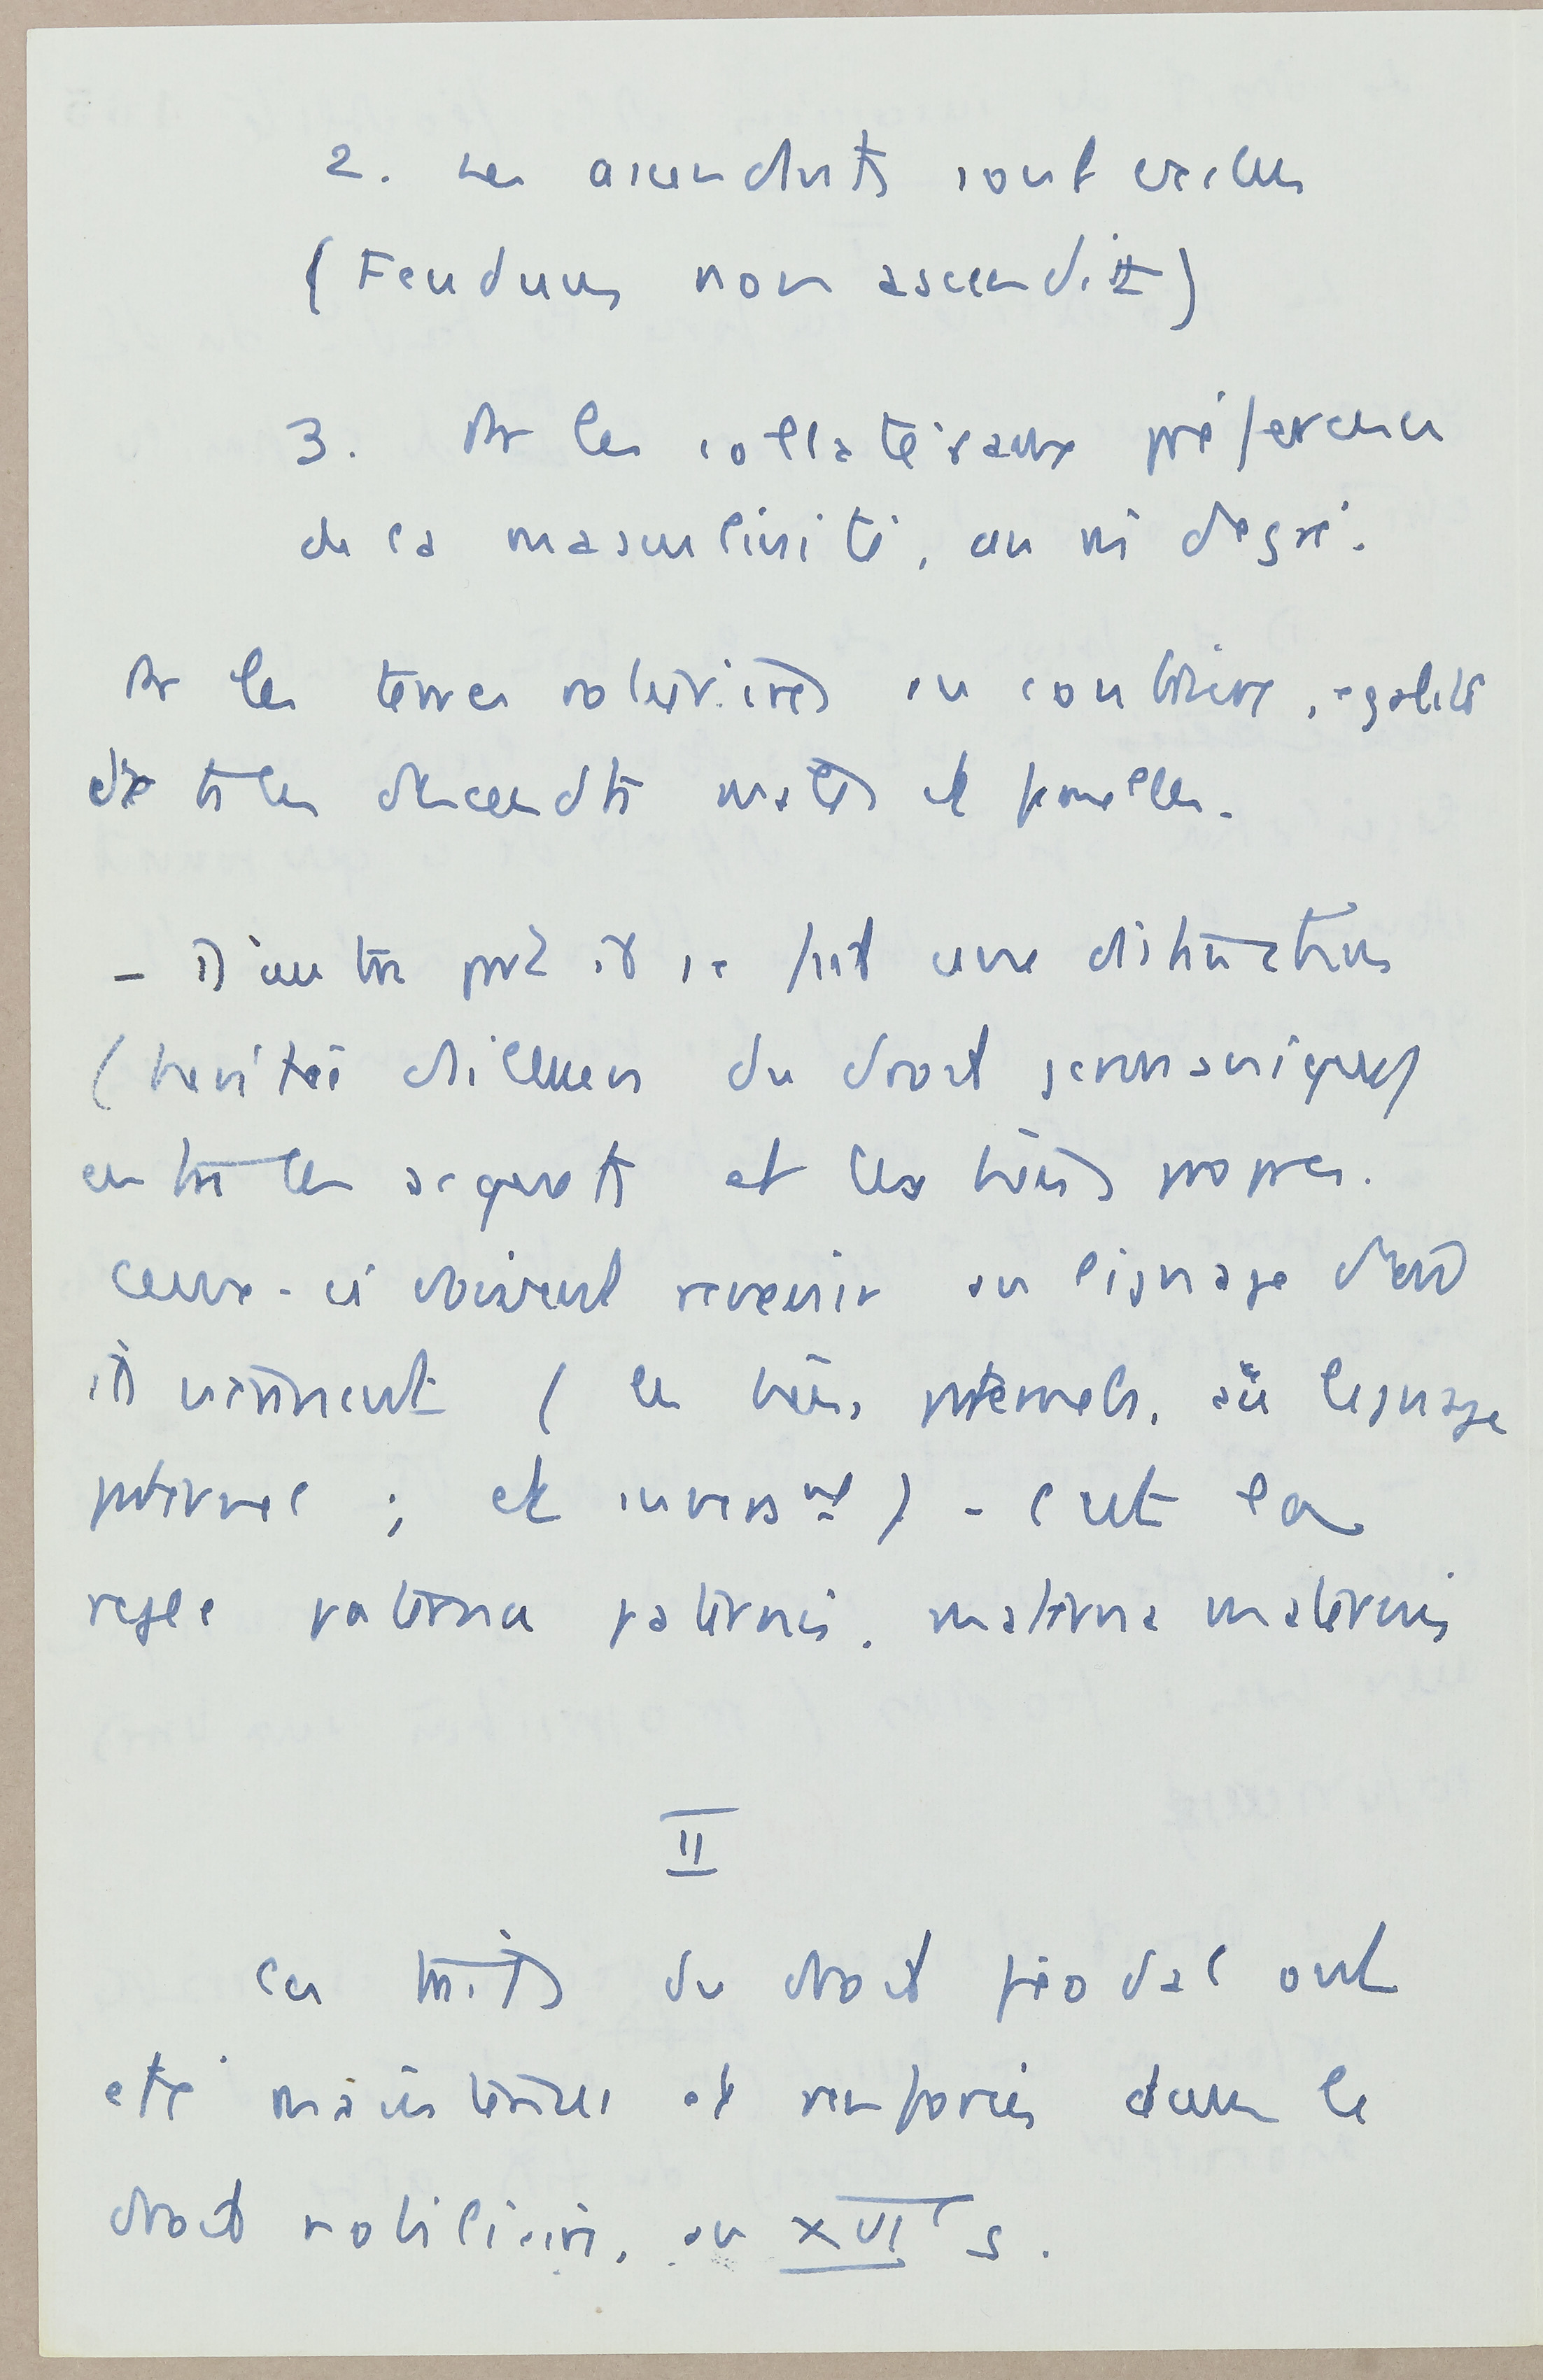 2. Les ascendants sont exclus
(Feudum non ascendit)
3. Pr les collatéraux préférence
de la masculinité, au m̂ degré.
Pr les terres roturières au contraire, égalité
de ts les descendts mâles et femelles.
- D'autre part il se fait une distinction
(héritée d'ailleurs du droit germanique)
entre les acquets et les biens propres.
Ceux-ci doivent revenir au lignage dont
ils viennent (les biens paternels, au lignage
paternel ; et inversmt) - C'est la
règle paterna paternis, materna maternis
II
Ces traits du droit féodal ont
été maintenus et renforcés dans le
droit nobiliaire, au XVIe s.